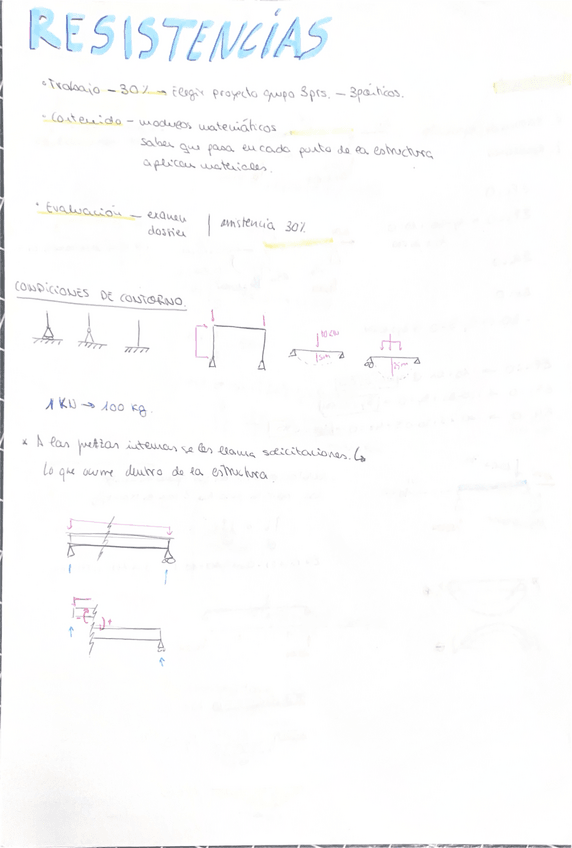 RESISTENCIAS
• Trabajo - 30% → Elegir proyecto grupo 3prs. - 3 prácticos.
• Contenido - modelos matemáticos
saber que pasa en cada punto de la estructura
aplican materiales.
• Evaluación - examen | asistencia 30%
dossier
CONDICIONES DE CONTORNO.
10 KN
5m
25m
1 KN → 100 kg.
* A las fuerzas internas se les llama solicitaciones. ↳
lo que ocurre dentro de la estructura.